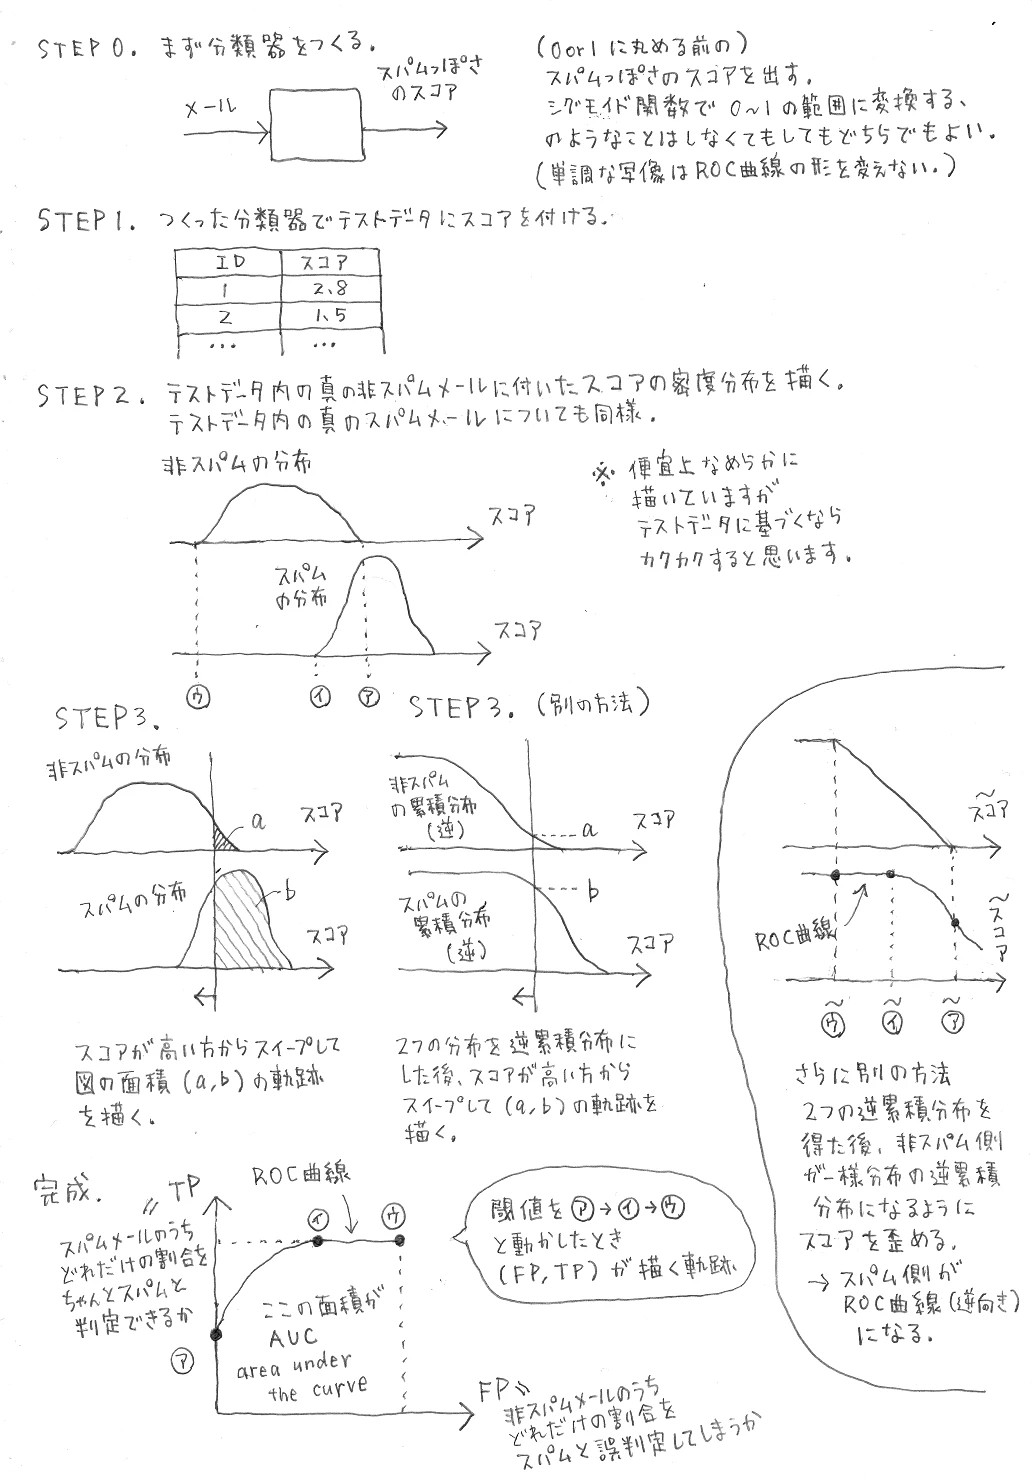 STEP0. まず分類器をつくる.
メール
スパムっぽさ
のスコア
(0or1に丸める前の)
スパムっぽさのスコアを出す.
シグモイド関数で 0~1の範囲に変換する、
のようなことはしなくてもしてもどちらでもよい.
(単調な写像はROC曲線の形を変えない.)
STEP1. つくった分類器でテストデータにスコアを付ける.
ID スコア
1 2.8
2 1.5
... ...
STEP2. テストデータ内の真の非スパムメールに付いたスコアの密度分布を描く.
テストデータ内の真のスパムメールについても同様.
非スパムの分布
スコア
スパム
の分布
スコア
㋒ ㋑ ㋐
※ 便宜上なめらかに
描いていますが
テストデータに基づくなら
カクカクすると思います.
STEP3.
非スパムの分布
a
スコア
スパムの分布
b
スコア
スコアが高い方からスイープして
図の面積(a,b)の軌跡
を描く.
STEP3. (別の方法)
非スパム
の累積分布
(逆)
a
スコア
スパムの
累積分布
(逆)
b
スコア
2つの分布を逆累積分布に
した後、スコアが高い方から
スイープして(a,b)の軌跡を
描く.
~スコア
ROC曲線
~スコア
~㋒ ~㋑ ~㋐
さらに別の方法
2つの逆累積分布を
得た後、非スパム側
が一様分布の逆累積
分布になるように
スコアを歪める.
→ スパム側が
ROC曲線(逆向き)
になる.
完成.
TP
=
スパムメールのうち
どれだけの割合を
ちゃんとスパムと
判定できるか
ROC曲線
㋑ ㋒
㋐
ここの面積が
AUC
area under
the curve
閾値を㋐→㋑→㋒
と動かしたとき
(FP,TP)が描く軌跡
FP =
非スパムメールのうち
どれだけの割合を
スパムと誤判定してしまうか